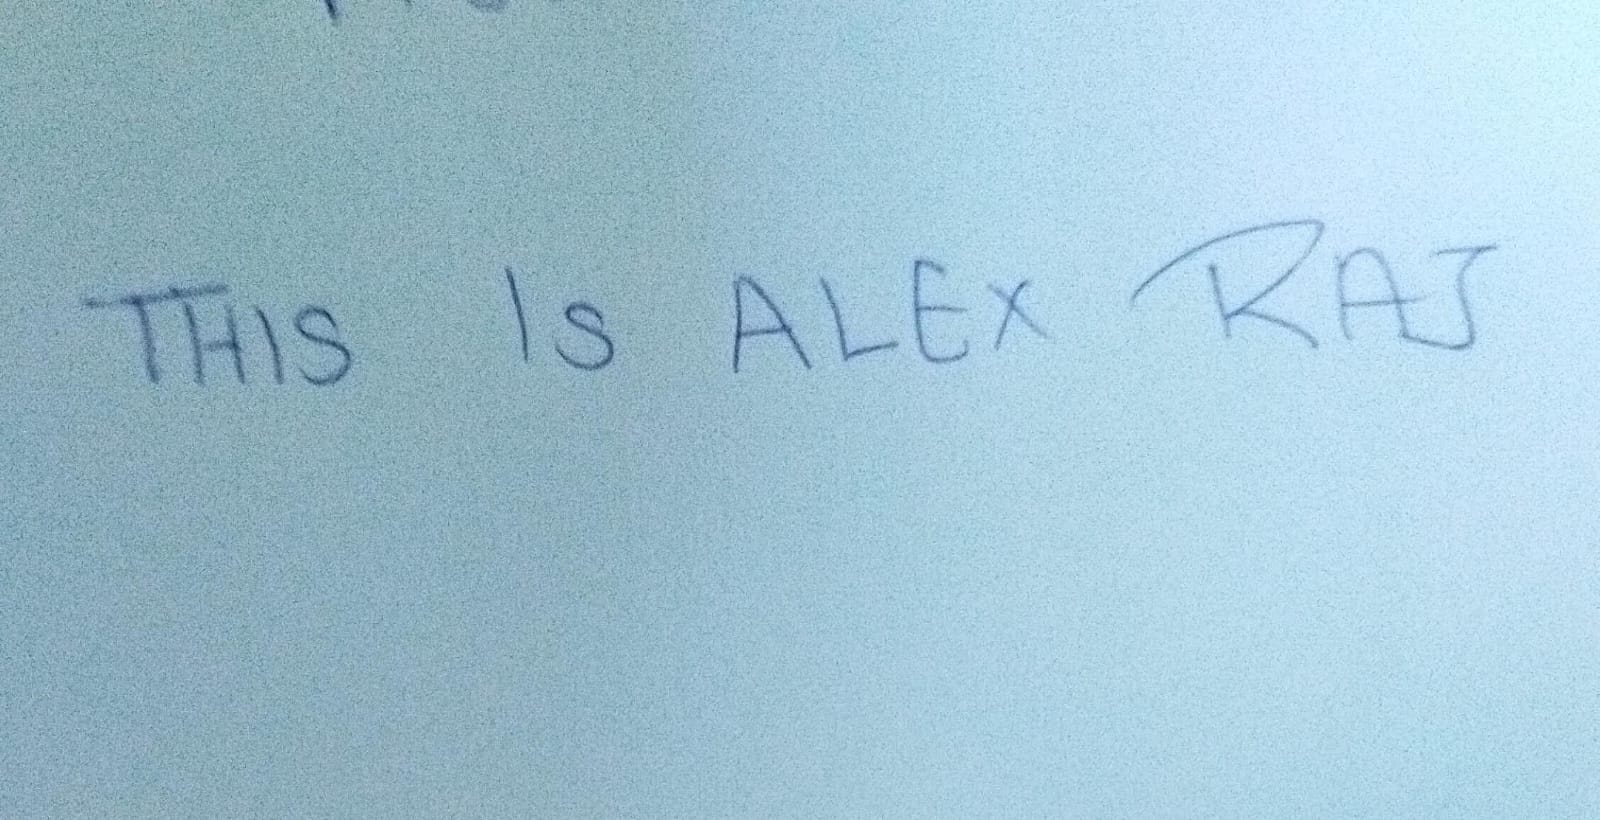 THIS IS ALEX RAJ